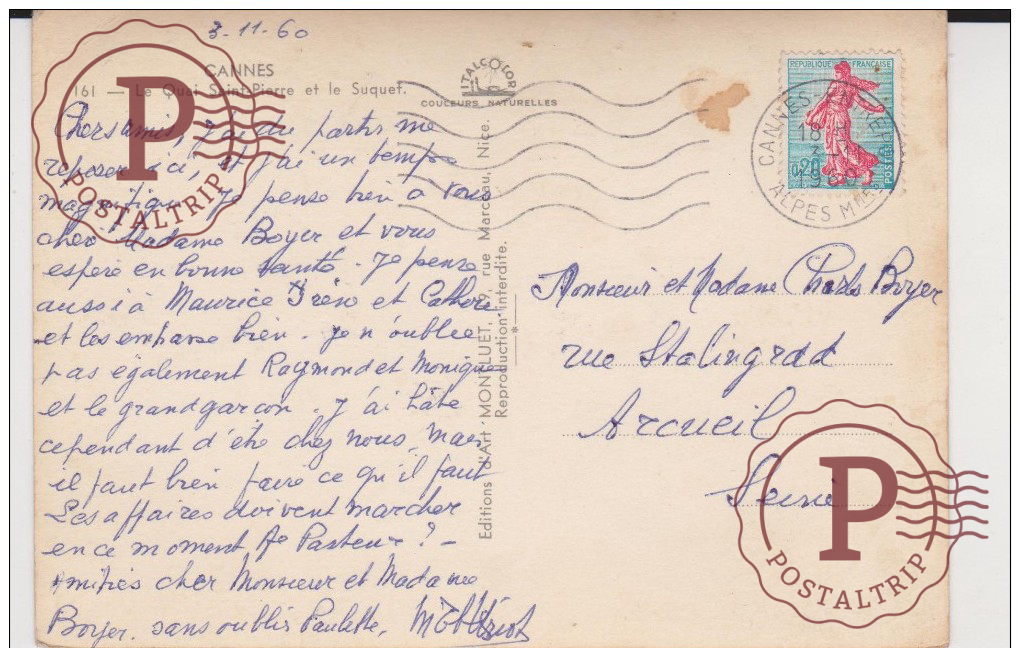 3-11-60
CANNES
161 — Le Quai Saint-Pierre et le Suquet.
Chers amis, J'ai du partir me
reposer ici, et j'ai un temps
magnifique. Je pense bien à vous
cher Madame Boyer et vous
espère en bonne santé. Je pense
aussi à Maurice Irène et Cather
et les embrasse bien. Je n'oublie
pas également Raymond et Monique
et le grand garçon. J'ai hâte
cependant d'être chez nous, mais
il faut bien faire ce qu'il faut
Les affaires doivent marcher
en ce moment Av Pasteur ? -
Amitiés cher Monsieur et Madame
Boyer. sans oublier Paulette,
ITALCOLOR
COULEURS NATURELLES
Editions d'Art MONTLUET, 19, rue Marceau, Nice.
Reproduction interdite.
REPUBLIQUE FRANÇAISE
0,20
POSTES
CANNES
18
3
1960
ALPES MMES
Monsieur et Madame Charles Boyer
rue Stalingrad
Arcueil
Seine
P
POSTALTRIP
P
POSTALTRIP